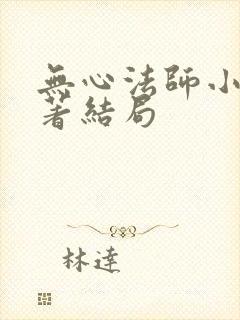 無心法師小
著結局
林達